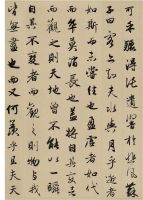 可乎驟得託遺響於悲風蘇
子曰客亦知夫水與月乎逝者
如斯而未嘗往也盈虛者如代
而卒莫消長也蓋將自其變者
而觀之則天地曾不能以一瞬
自其不變者而觀之則物與我
皆無盡也而又何羨乎且夫天